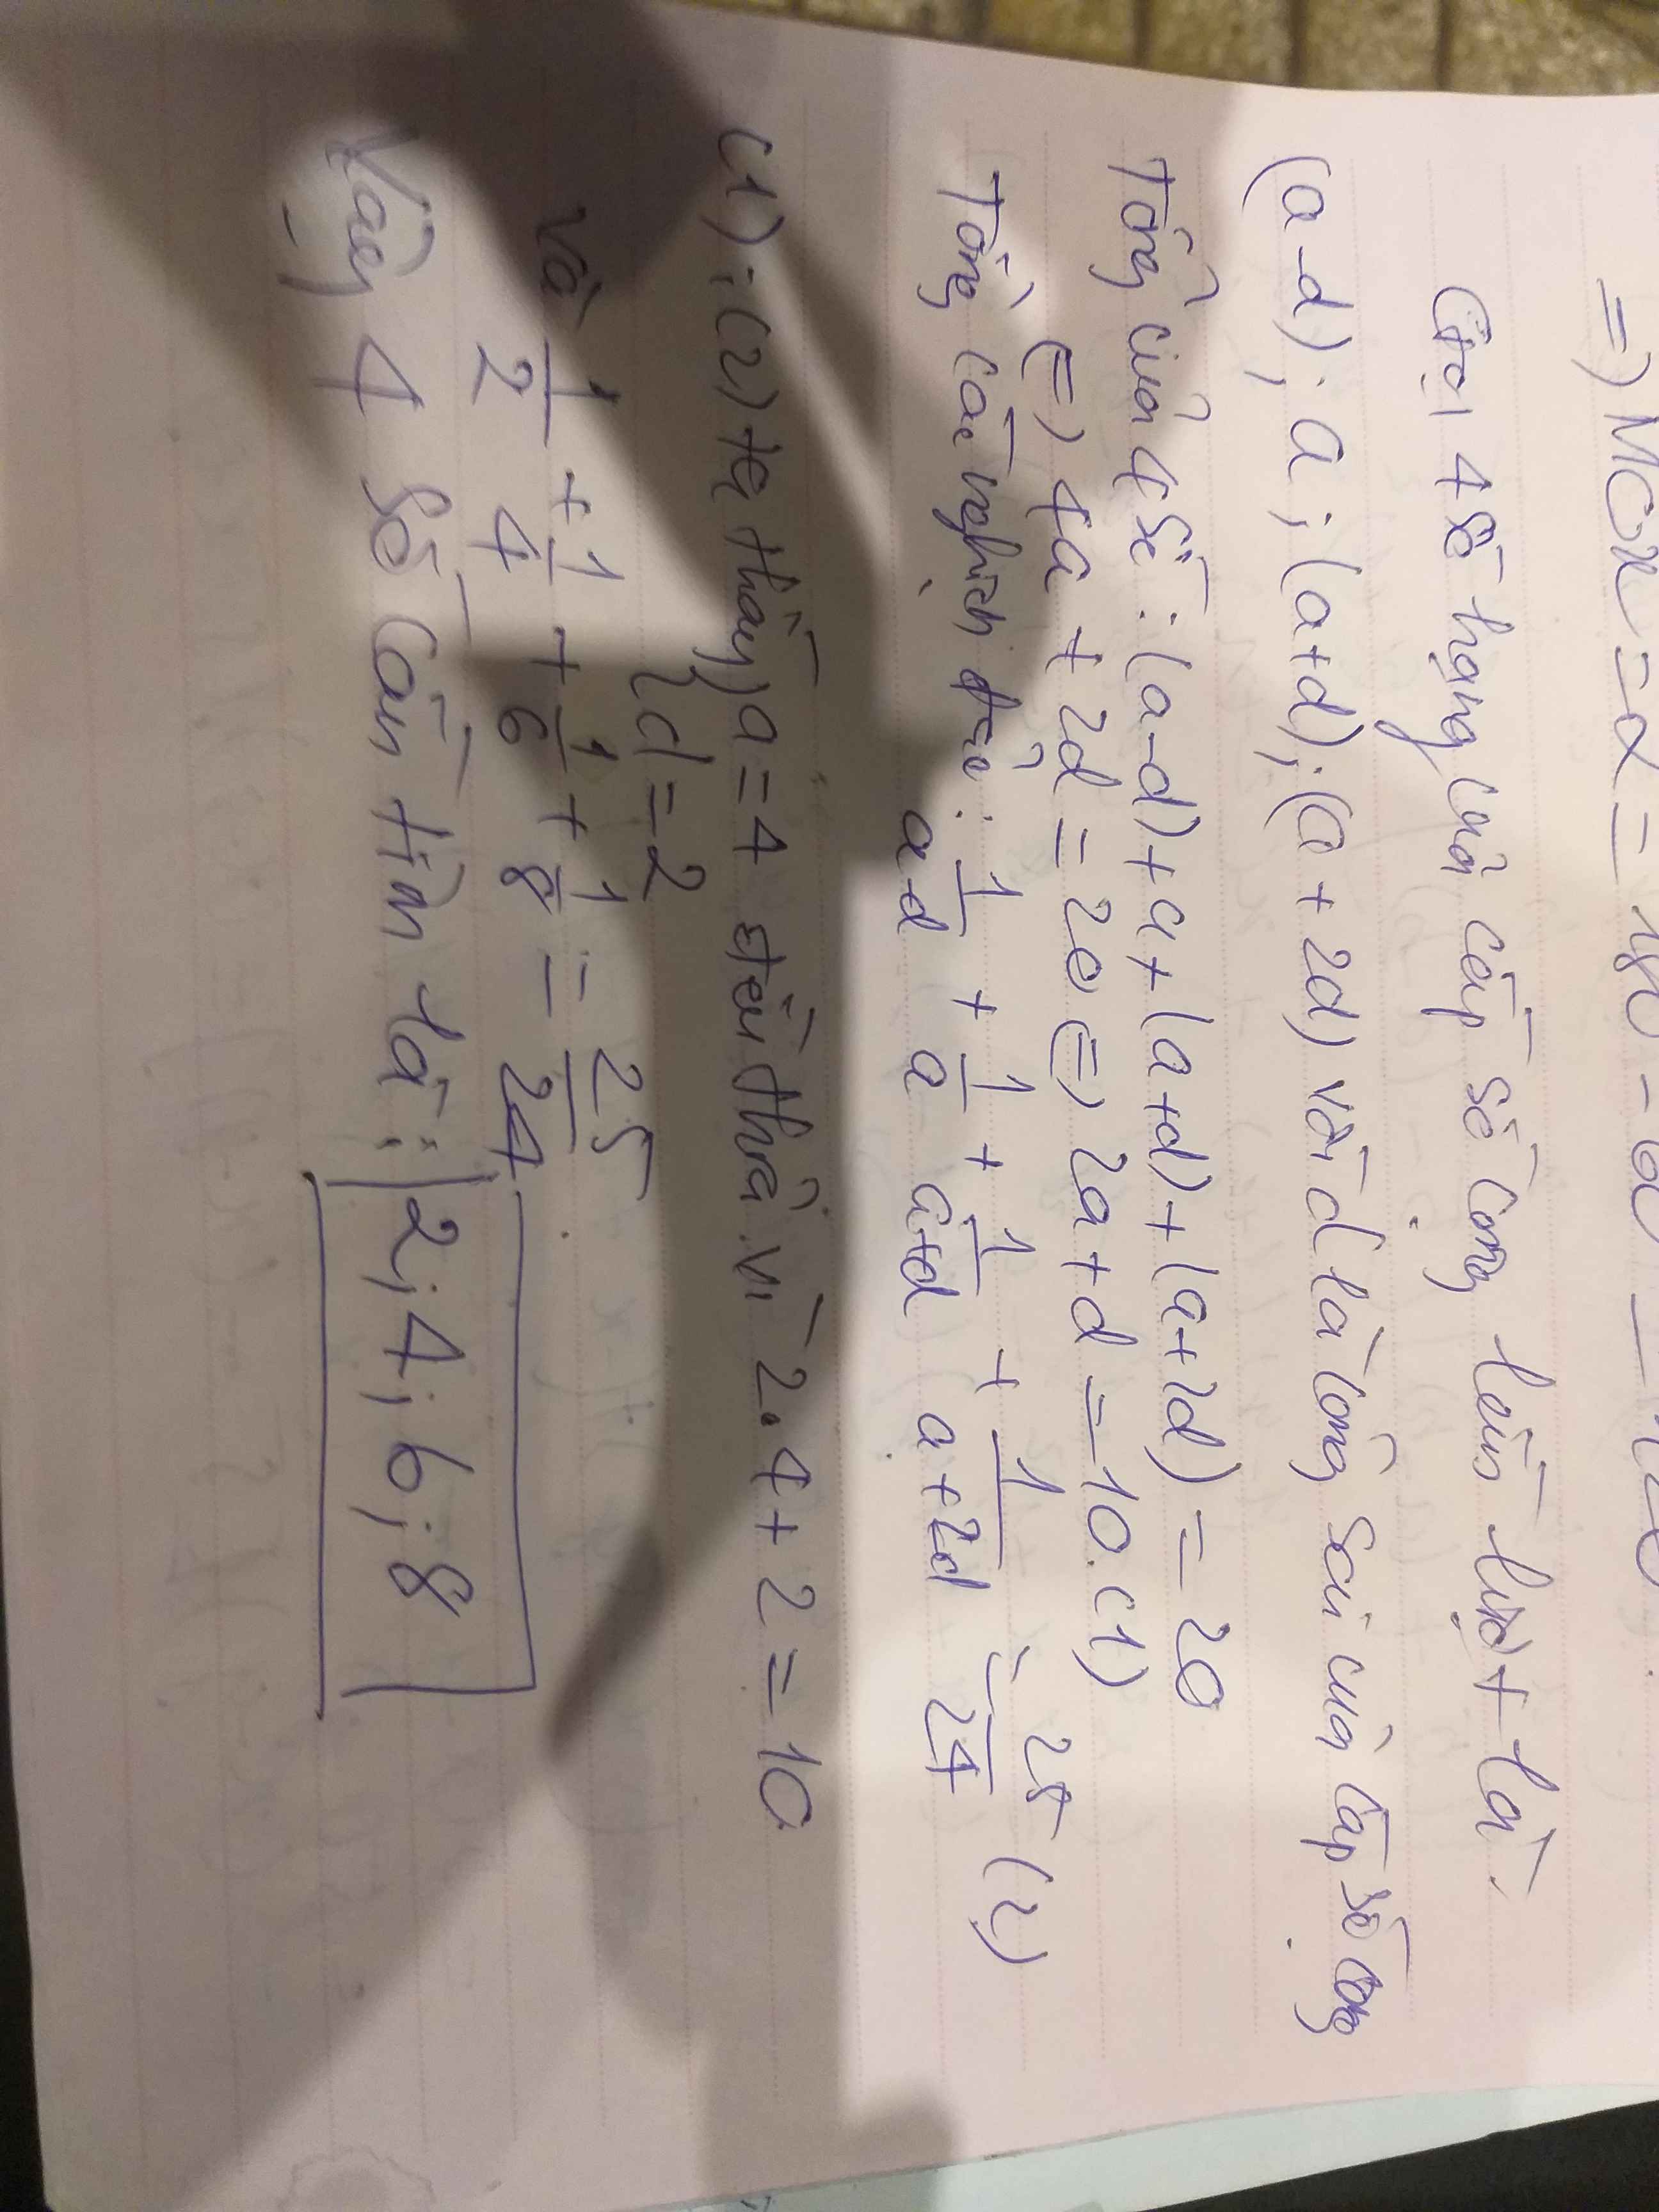 =) MOx = α = 180 -
Gọi 4 số hạng của cấp số cộng lần lượt là:
(a-d); a; (a+d); (a+2d) với d là công sai của cấp số cộng
Tổng của 4 số: (a-d)+a+(a+d)+(a+2d) = 20
(=) 4a + 2d = 20 (=) 2a+d = 10 (1)
Tổng các nghịch đảo: 1/(a-d) + 1/a + 1/(a+d) + 1/(a+2d) = 25/24 (2)
(1); (2) ta thấy { a = 4 thỏa vì 2.4 + 2 = 10
d = 2
và 1/2 + 1/4 + 1/6 + 1/8 = 25/24
Vậy 4 số cần tìm là: 2; 4; 6; 8